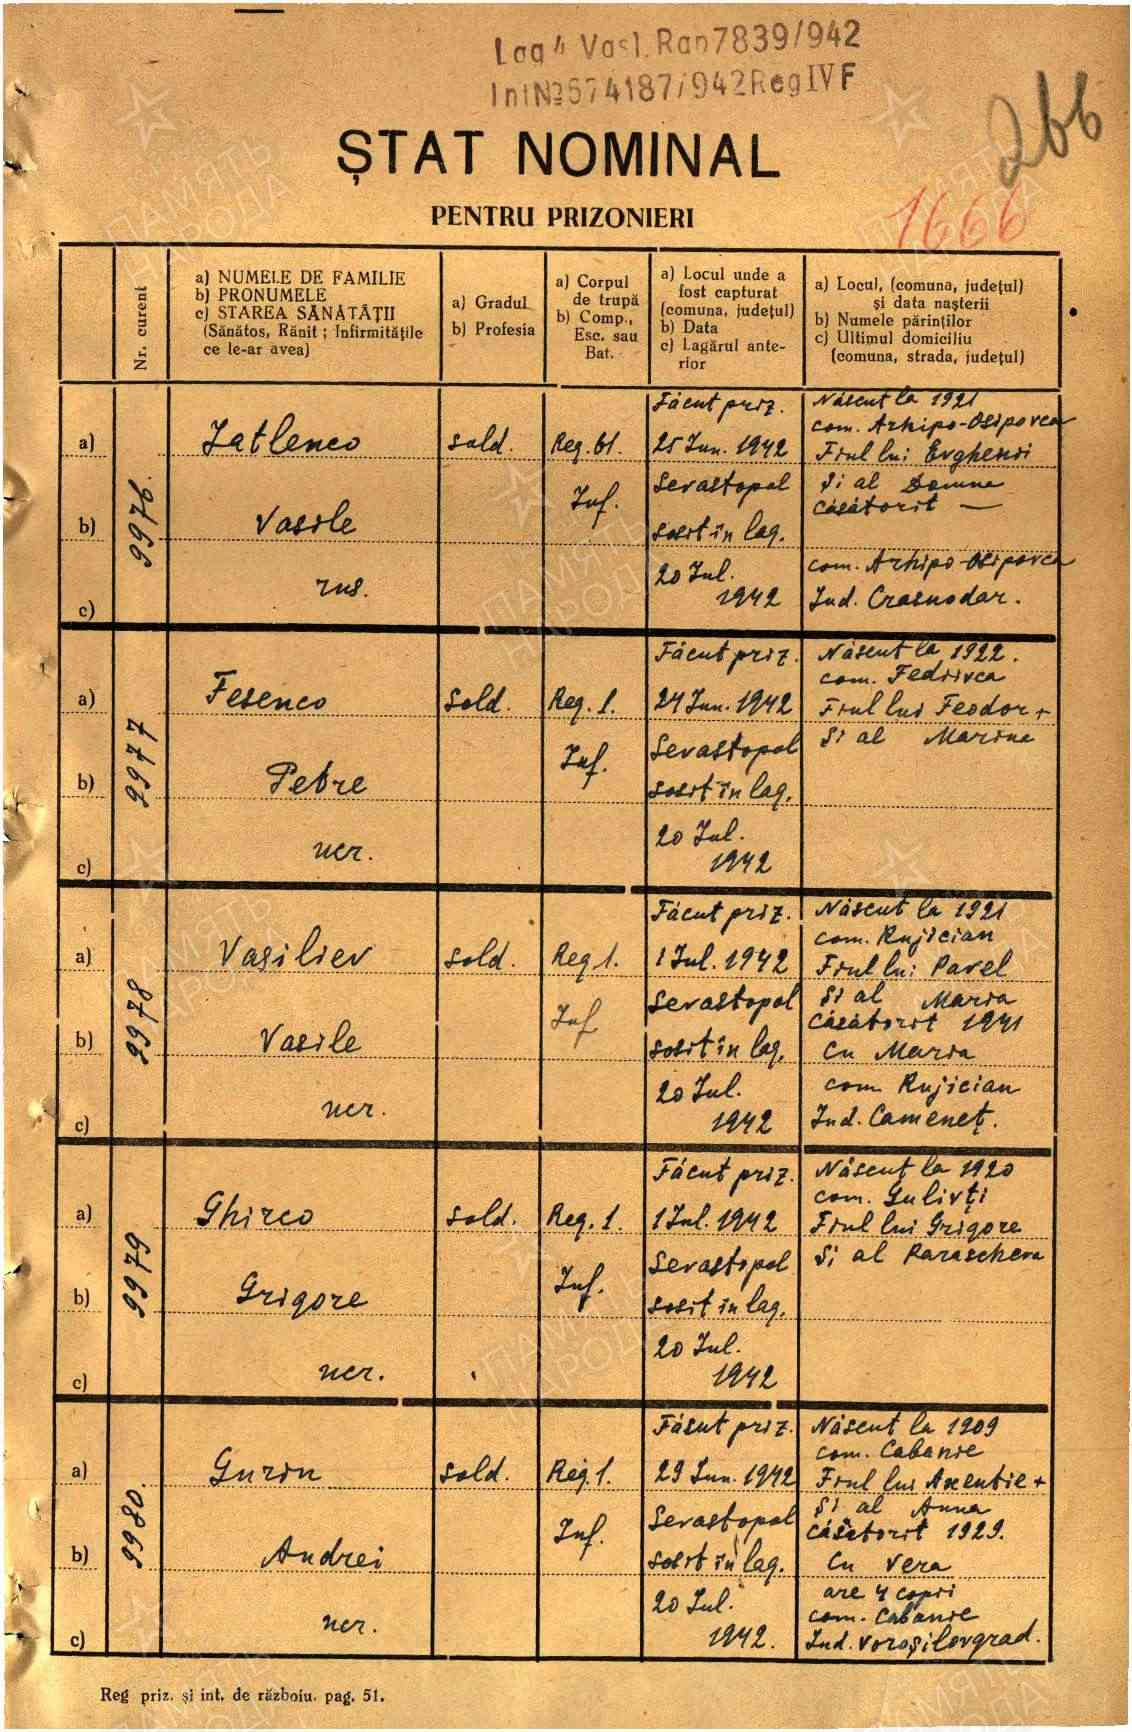 Lag 4 Vasl. Rap 7839/942
Int № 674187/942 Reg IV F
266
ȘTAT NOMINAL
1666
PENTRU PRIZONIERI
Nr. curent
a) NUMELE DE FAMILIE
b) PRONUMELE
c) STAREA SĂNĂTĂȚII
(Sănătos, Rănit; Infirmitățile
ce le-ar avea)
a) Gradul
b) Profesia
a) Corpul
de trupă
b) Comp.,
Esc. sau
Bat.
a) Locul unde a
fost capturat
(comuna, județul)
b) Data
c) Lagărul ante-
rior
a) Locul, (comuna, județul)
și data nașterii
b) Numele părinților
c) Ultimul domiciliu
(comuna, strada, județul)
9976.
a) Zatlenco
b) Vasile
c) rus.
sold.
Reg. 61.
Inf.
Făcut priz.
25 Iun. 1942
Sevastopol
sosit în lag.
20 Iul.
1942
Născut la 1921
com. Arhipo-Osipovca
Fiul lui Evgheni
și al Domna
Căsătorit —
com. Arhipo-Osipovca
Jud. Crasnodar.
9977
a) Fesenco
b) Petre
c) ucr.
sold.
Reg. 1.
Inf.
Făcut priz.
24 Iun. 1942
Sevastopol
sosit în lag.
20 Iul.
1942
Născut la 1922.
com. Fediivca
Fiul lui Feodor +
și al Marina
9978
a) Vasiliev
b) Vasile
c) ucr.
sold.
Reg 1.
Inf
Făcut priz.
1 Iul. 1942
Sevastopol
sosit în lag.
20 Iul.
1942
Născut la 1921
com. Rujician
Fiul lui Pavel
și al Maria
Căsătorit 1941
cu Maria
com Rujician
Jud. Cameneț.
9979
a) Ghirco
b) Grigore
c) ucr.
sold.
Reg. 1.
Inf.
Făcut priz.
1 Iul. 1942
Sevastopol
sosit în lag.
20 Iul.
1942
Născut la 1920
com. Gulivți
Fiul lui Grigore
și al Parascheva
9980.
a) Gurin
b) Andrei
c) ucr.
sold.
Reg. 1.
Inf.
Făcut priz.
29 Iun. 1942
Sevastopol
sosit în lag.
20 Iul.
1942.
Născut la 1909
com. Cabanie
Fiul lui Axentie +
și al Anna
căsătorit 1929.
cu Vera
are 4 copii
com. Cabanie
Jud. Voroșilovgrad.
Reg priz. și int. de războiu. pag. 51.
ПАМЯТЬ
НАРОДА